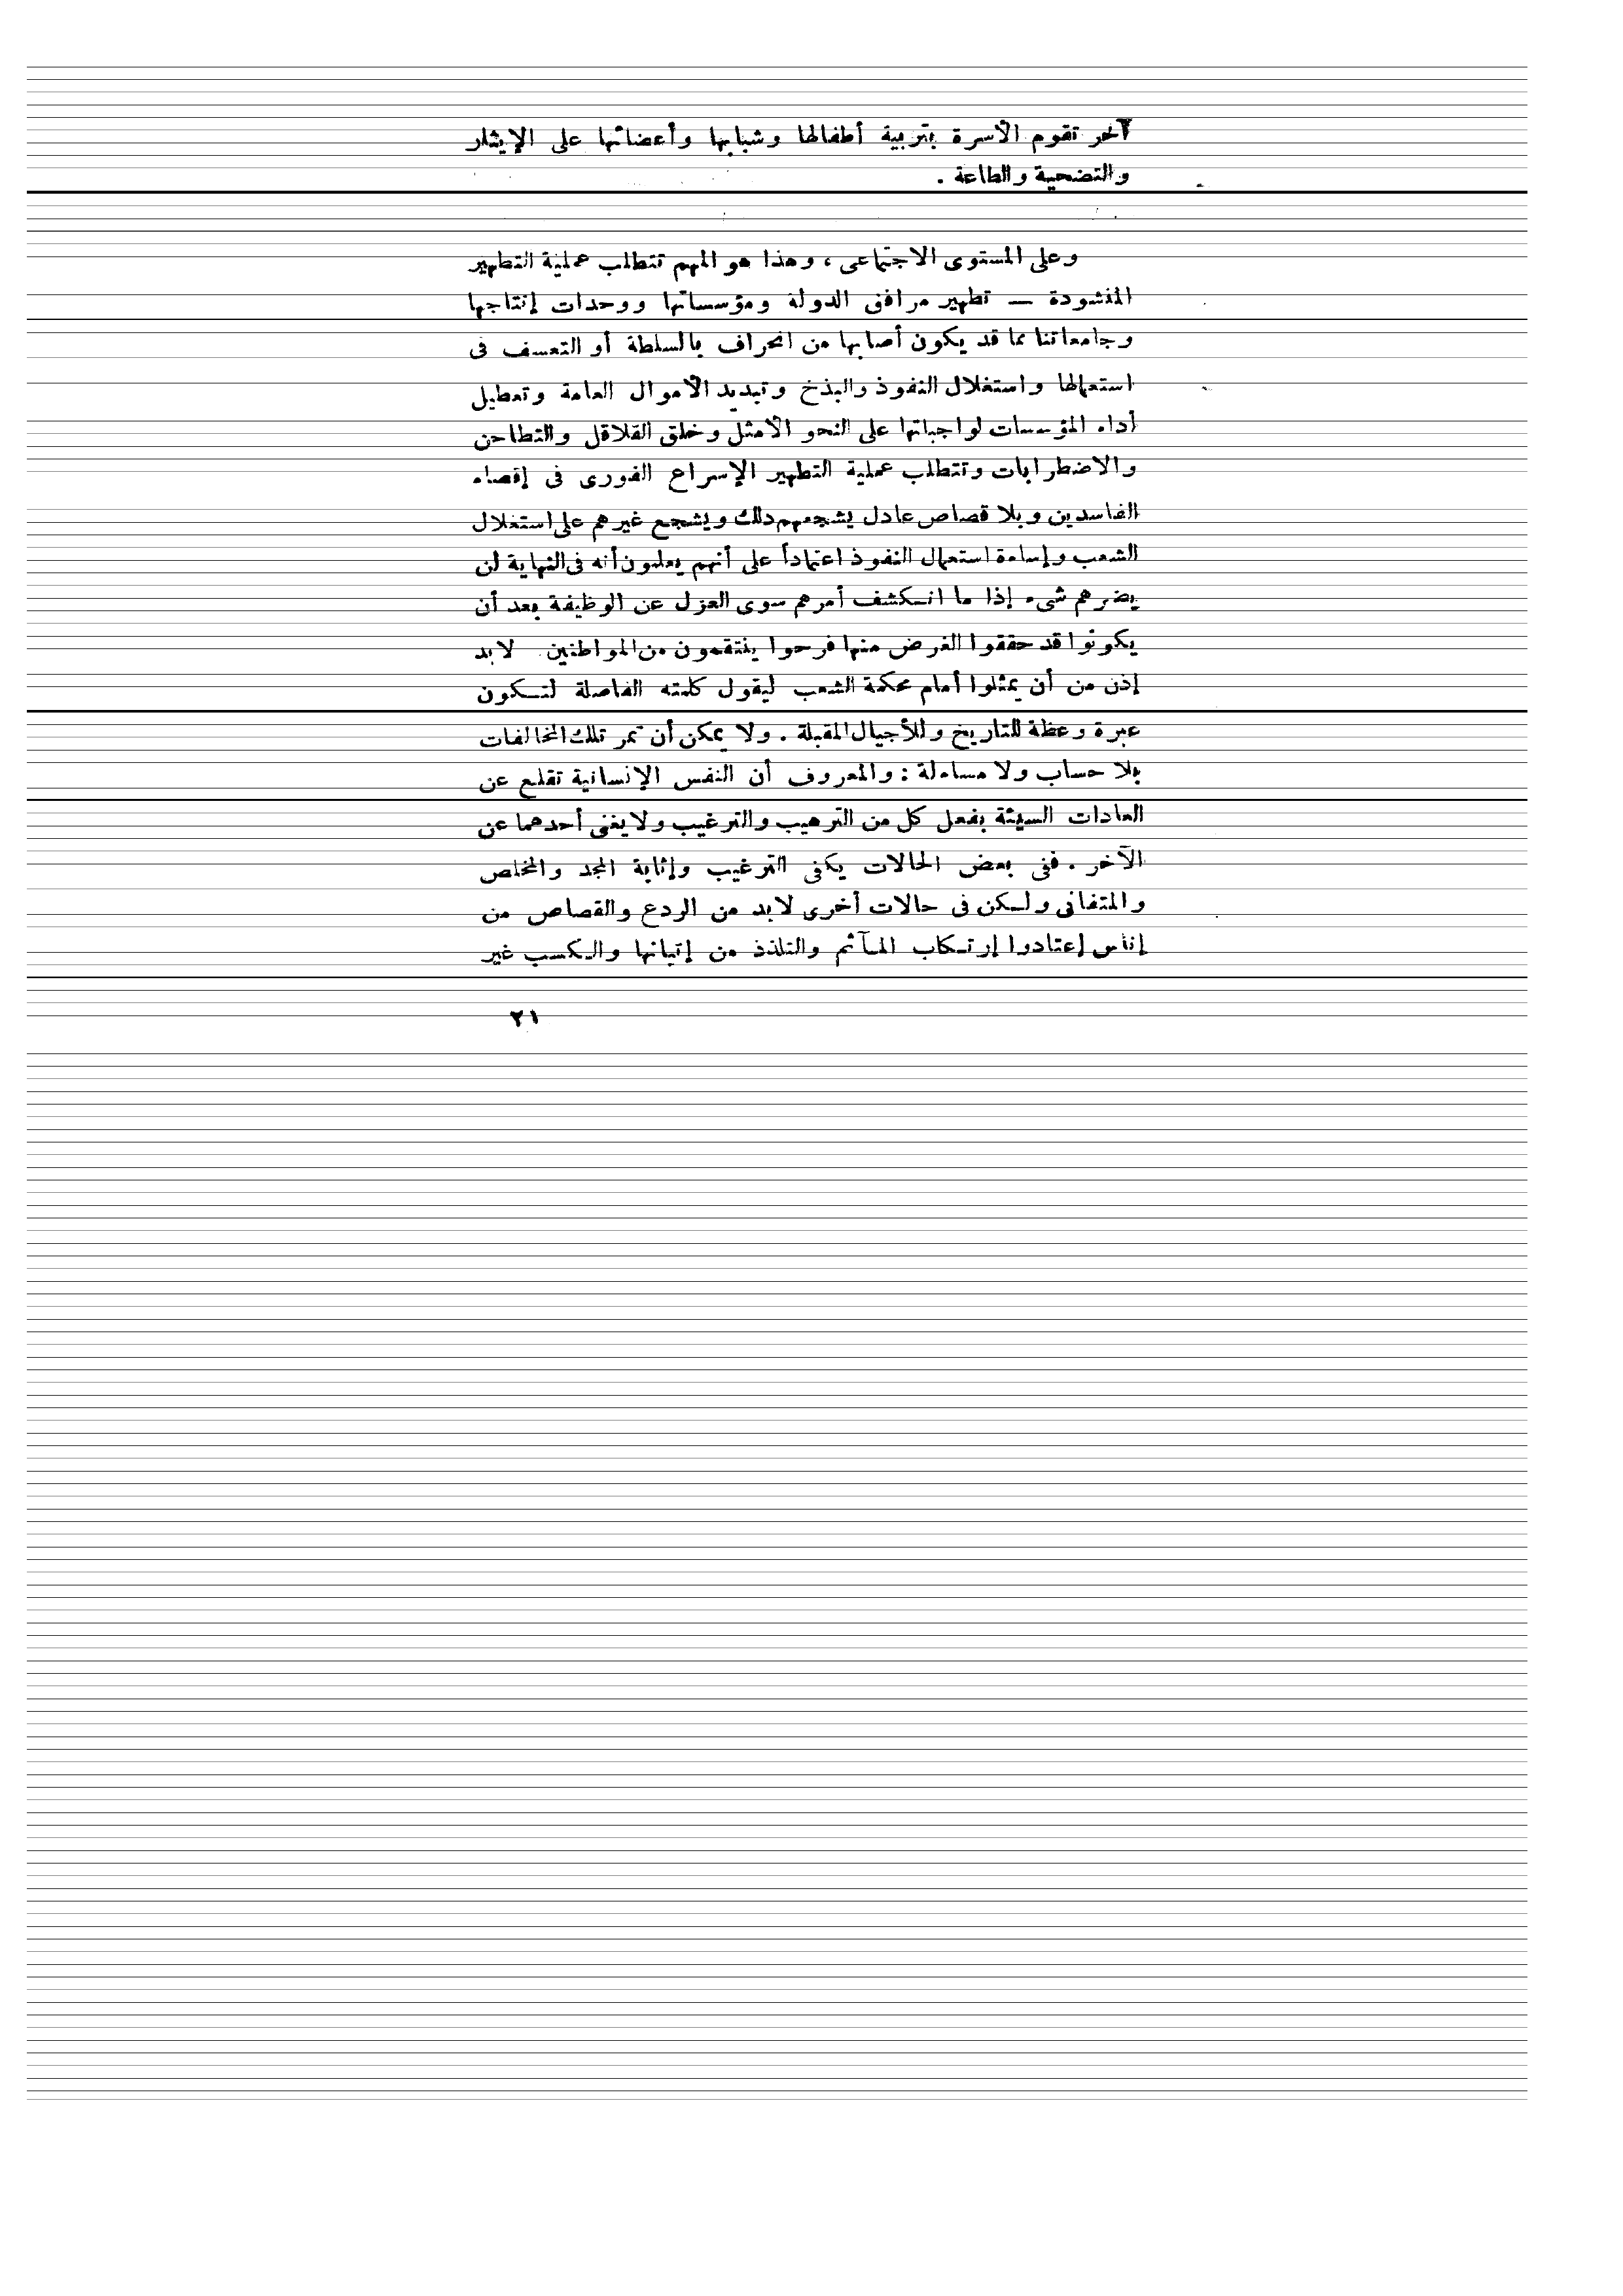 آخر تقوم الأسرة بتربية أطفالها وشبابها وأعضائها على الإيثار
والتضحية والطاعة .
وعلى المستوى الاجتماعى ، وهذا هو المهم تتطلب عملية التطهير
المنشودة — تطهير مرافق الدولة ومؤسساتها ووحدات إنتاجها
وجامعاتنا مما قد يكون أصابها من انحراف بالسلطة أو التعسف فى
استعمالها واستغلال النفوذ والبذخ وتبديد الأموال العامة وتعطيل
أداء المؤسسات لواجباتها على النحو الأمثل وخلق القلاقل والتطاحن
والاضطرابات وتتطلب عملية التطهير الإسراع الفورى فى إقصاء
الفاسدين وبلا قصاص عادل يشجعهم ذلك ويشجع غيرهم على استغلال
الشعب وإساءة استعمال النفوذ اعتماداً على أنهم يعلمون أنه فى النهاية لن
يضرهم شىء إذا ما انكشف أمرهم سوى العزل عن الوظيفة بعد أن
يكونوا قد حققوا الغرض منها فرحوا ينتقمون من المواطنين لابد
إذن من أن يمثلوا أمام محكمة الشعب ليقول كلمته الفاصلة لتكون
عبرة وعظة للتاريخ وللأجيال المقبلة . ولا يمكن أن تمر تلك المخالفات
بلا حساب ولا مساءلة : والمعروف أن النفس الإنسانية تقلع عن
العادات السيئة بفعل كل من الترهيب والترغيب ولا يغنى أحدهما عن
الآخر . ففى بعض الحالات يكفى الترغيب وإثابة المجد والمخلص
والمتفانى ولكن فى حالات أخرى لابد من الردع والقصاص من
إناس إعتادوا إرتكاب المآثم والتلذذ من إتيانها والكسب غير
٢١